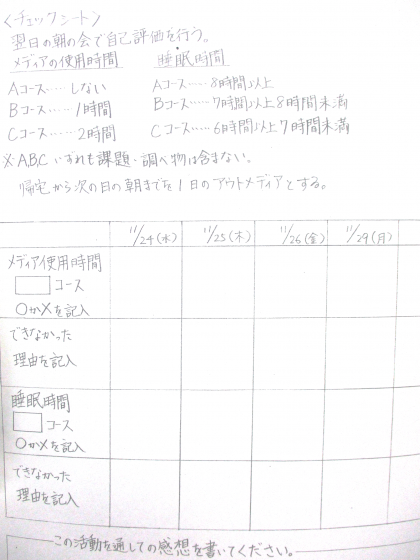 <チェックシート>
翌日の朝の会で自己評価を行う。
メディアの使用時間 ・睡眠時間
Aコース……しない Aコース……8時間以上
Bコース……1時間 Bコース……7時間以上8時間未満
Cコース……2時間 Cコース……6時間以上7時間未満
※ABCいずれも課題・調べ物は含まない。
帰宅から次の日の朝までを1日のアウトメディアとする。
11/24(水) 11/25(木) 11/26(金) 11/29(月)
メディア使用時間
コース
○か×を記入
できなかった
理由を記入
睡眠時間
コース
○か×を記入
できなかった
理由を記入
この活動を通しての感想を書いてください。